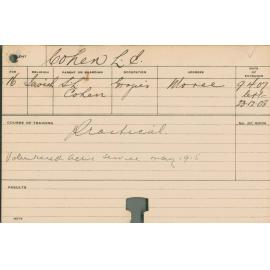 Cohen L. C.
AGE RELIGION PARENT OR GUARDIAN OCCUPATION ADDRESS DATE OF ENTRANCE
16 Jewish Moree 9.4.07
Cohen left
23.12.08
COURSE OF TRAINING NO. OF WEEKS
Practical
Volunteered active service May 1915
RESULTS
NOTE